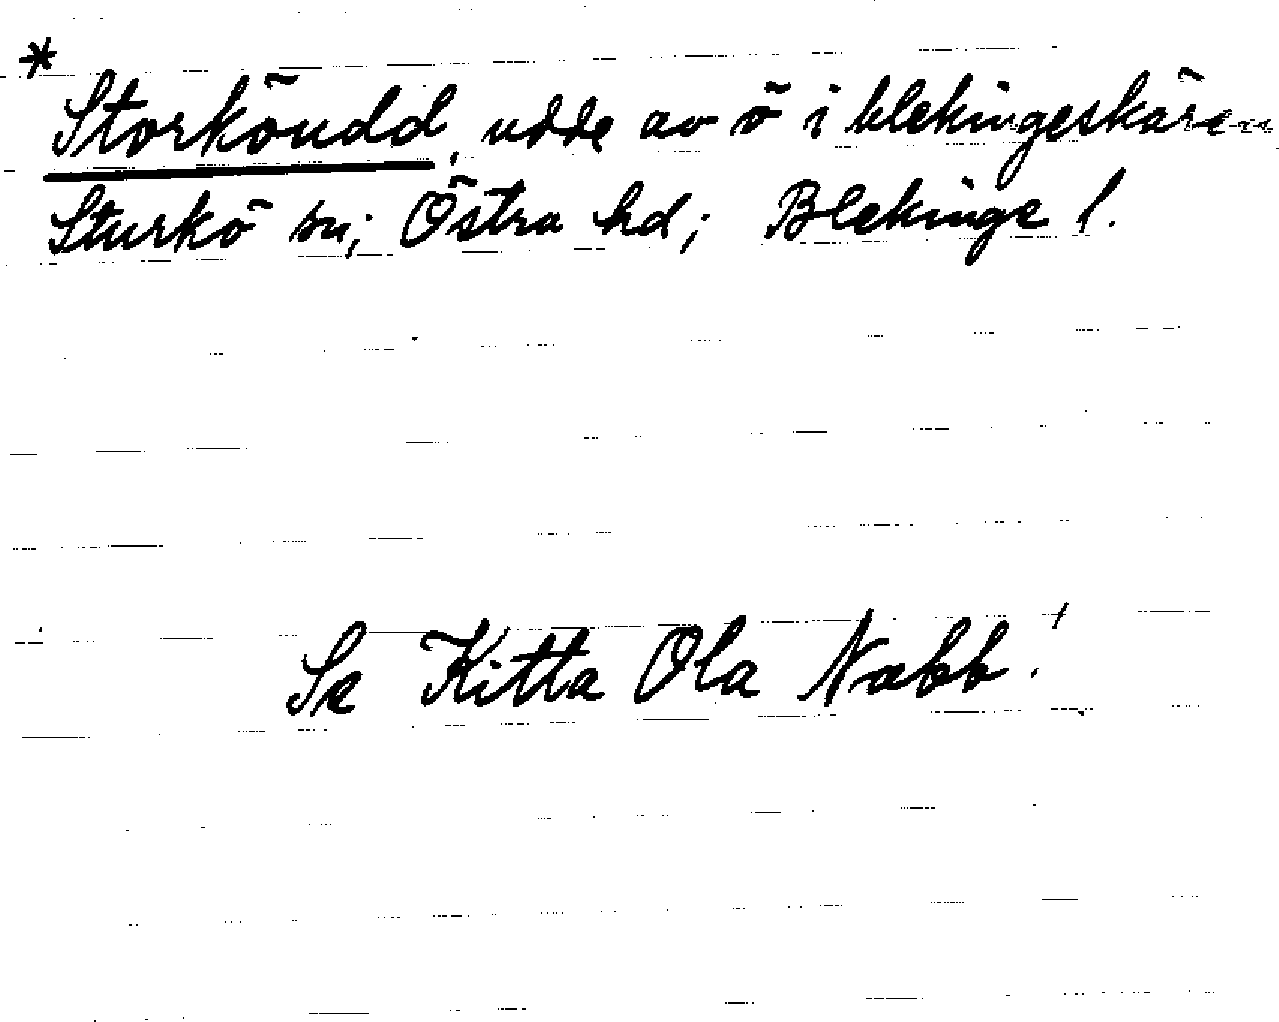 * Storköudd, udde av ö i blekingeskären
Sturkö sn; Östra hd; Blekinge l.
Se Kitta Ola Nabb!